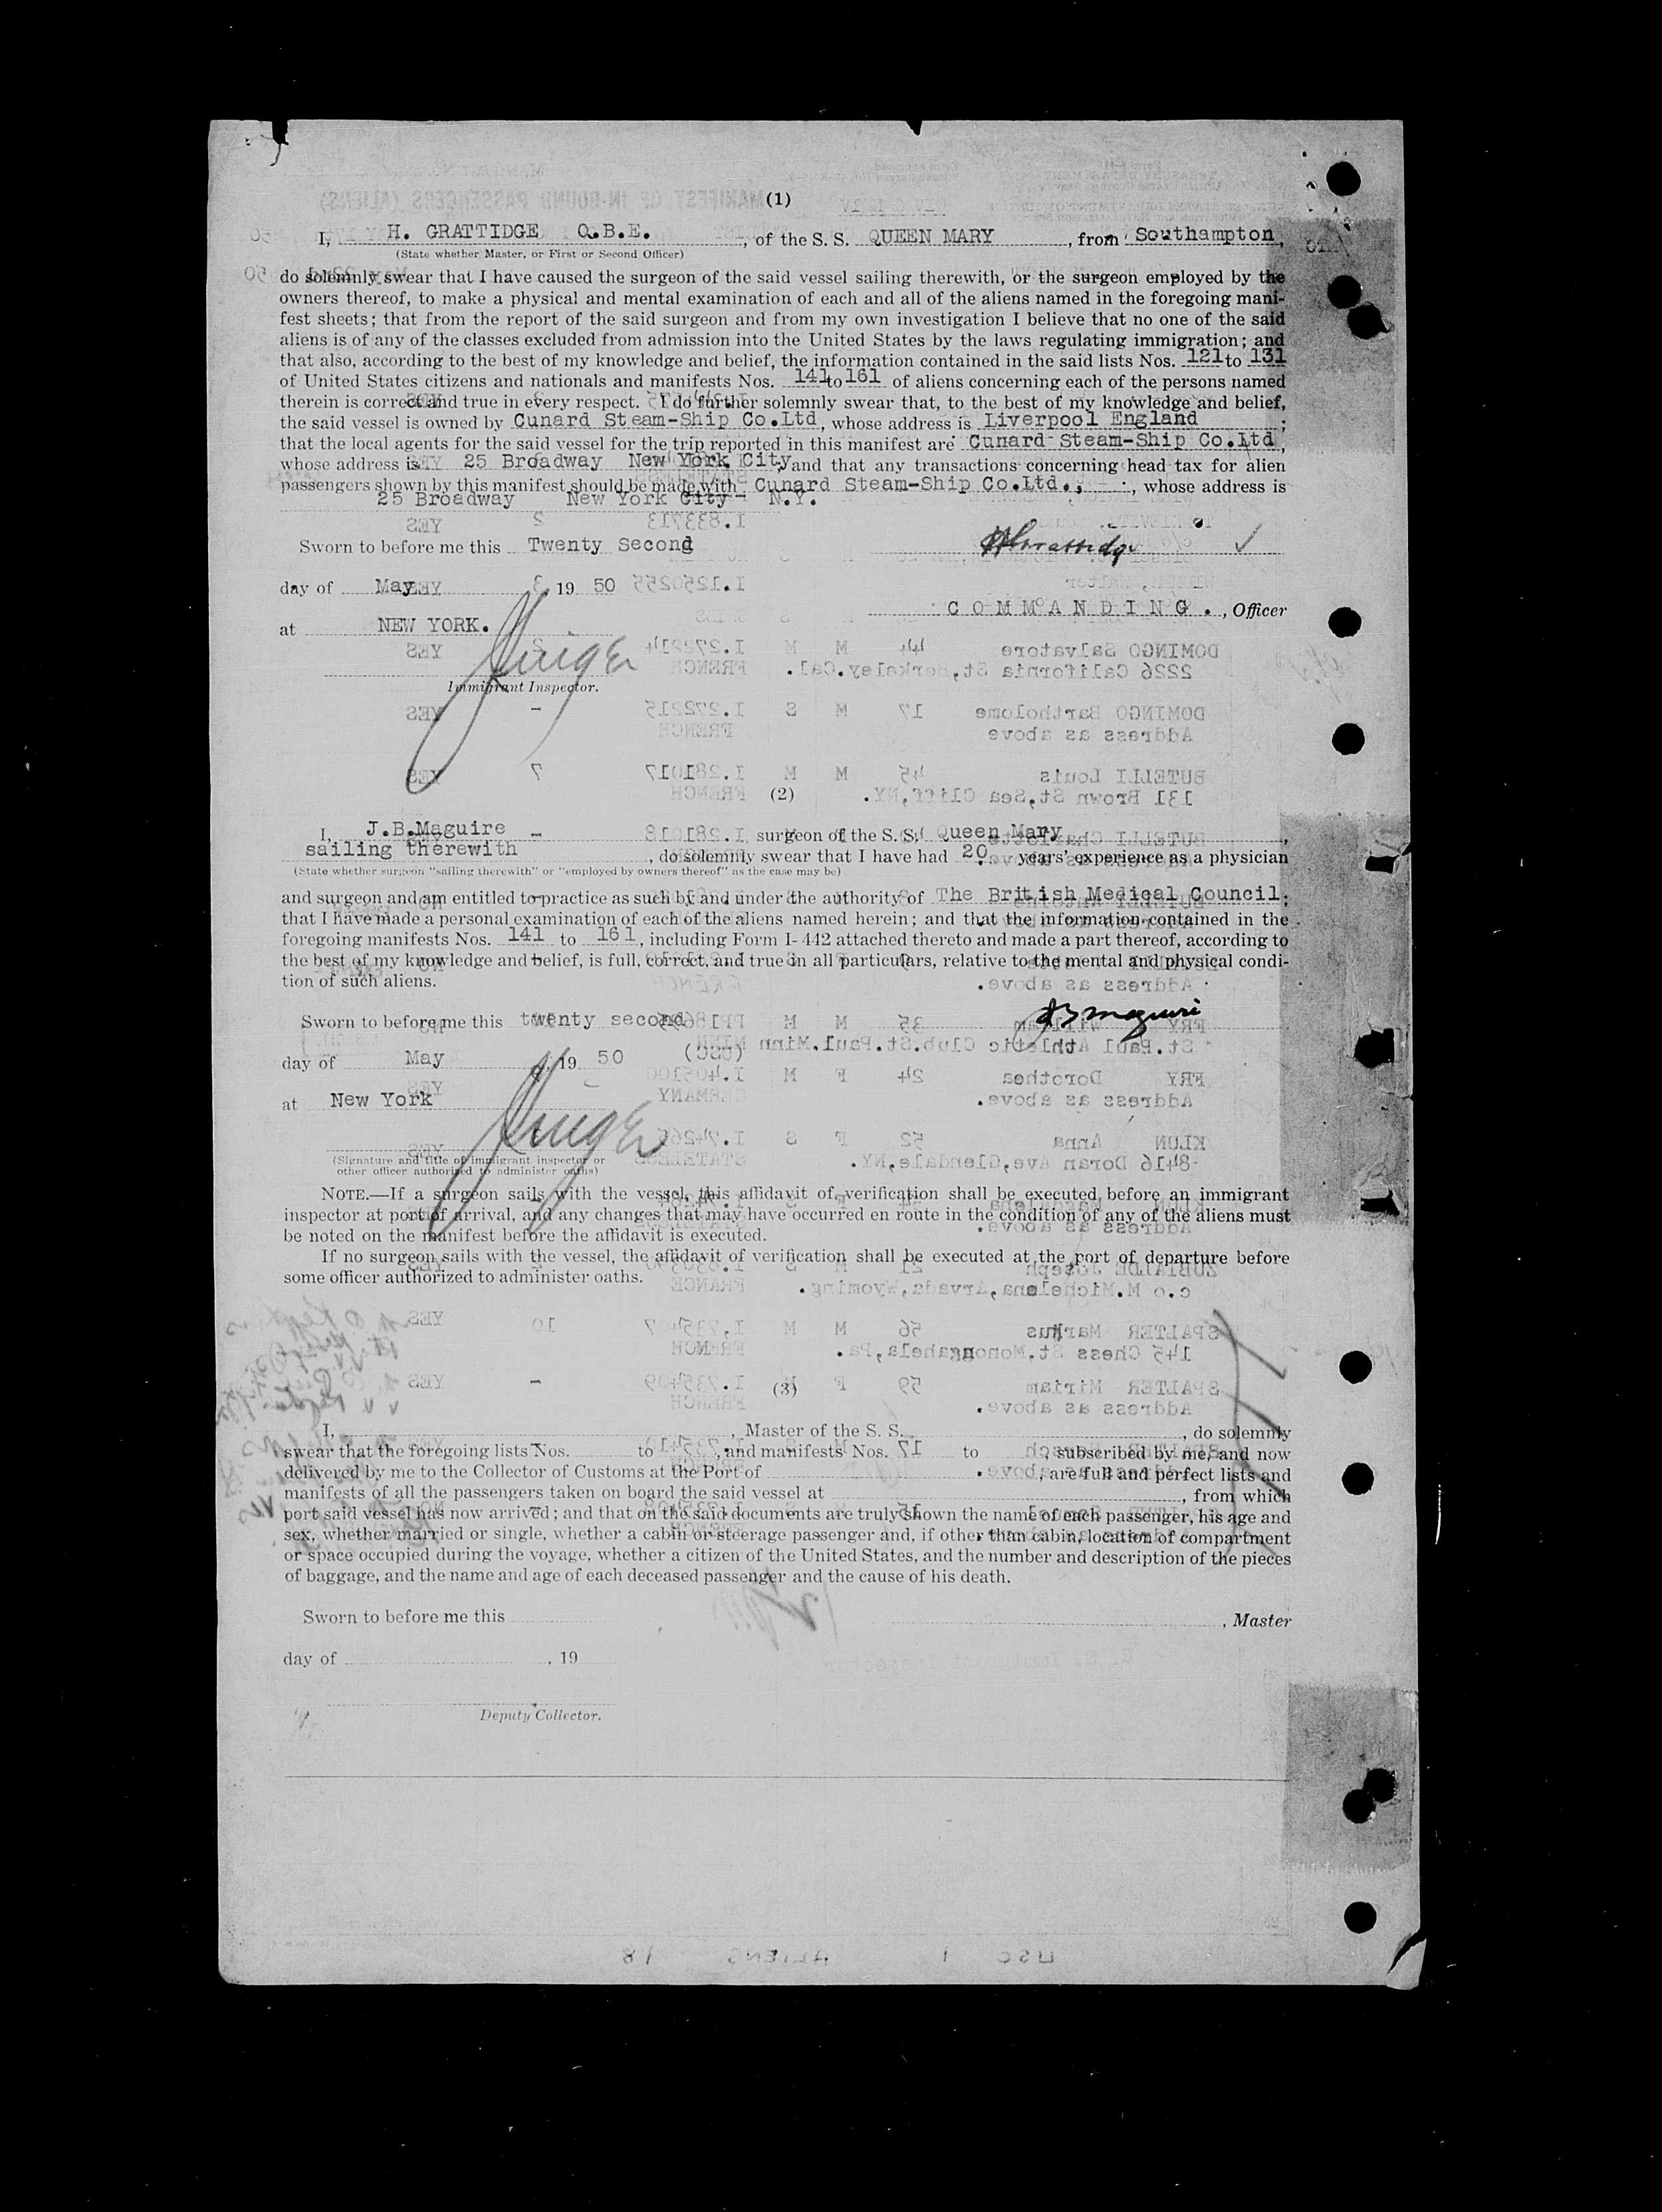 (1)
I, H. GRATTIDGE O.B.E. , of the S. S. QUEEN MARY , from Southampton,
(State whether Master, or First or Second Officer)
do solemnly swear that I have caused the surgeon of the said vessel sailing therewith, or the surgeon employed by the
owners thereof, to make a physical and mental examination of each and all of the aliens named in the foregoing mani-
fest sheets; that from the report of the said surgeon and from my own investigation I believe that no one of the said
aliens is of any of the classes excluded from admission into the United States by the laws regulating immigration; and
that also, according to the best of my knowledge and belief, the information contained in the said lists Nos. 121 to 131
of United States citizens and nationals and manifests Nos. 141 to 161 of aliens concerning each of the persons named
therein is correct and true in every respect. I do further solemnly swear that, to the best of my knowledge and belief,
the said vessel is owned by Cunard Steam-Ship Co.Ltd, whose address is Liverpool England ;
that the local agents for the said vessel for the trip reported in this manifest are Cunard Steam-Ship Co.Ltd,
whose address is 25 Broadway New York City, and that any transactions concerning head tax for alien
passengers shown by this manifest should be made with Cunard Steam-Ship Co.Ltd., , whose address is
25 Broadway New York City - N.Y.
Sworn to before me this Twenty Second HGrattidge
day of May , 19 50
COMMANDING. , Officer
at NEW YORK.
Immigrant Inspector.
(2)
I, J.B.Maguire , surgeon of the S. S. Queen Mary ,
sailing therewith , do solemnly swear that I have had 20 years' experience as a physician
(State whether surgeon "sailing therewith" or "employed by owners thereof" as the case may be)
and surgeon and am entitled to practice as such by and under the authority of The British Medical Council;
that I have made a personal examination of each of the aliens named herein; and that the information contained in the
foregoing manifests Nos. 141 to 161, including Form I-442 attached thereto and made a part thereof, according to
the best of my knowledge and belief, is full, correct, and true in all particulars, relative to the mental and physical condi-
tion of such aliens.
Sworn to before me this twenty second JB Maguire
day of May , 19 50
at New York
(Signature and title of immigrant inspector or
other officer authorized to administer oaths)
NOTE.—If a surgeon sails with the vessel, this affidavit of verification shall be executed before an immigrant
inspector at port of arrival, and any changes that may have occurred en route in the condition of any of the aliens must
be noted on the manifest before the affidavit is executed.
If no surgeon sails with the vessel, the affidavit of verification shall be executed at the port of departure before
some officer authorized to administer oaths.
(3)
I, , Master of the S. S. , do solemnly
swear that the foregoing lists Nos. to , and manifests Nos. to , subscribed by me, and now
delivered by me to the Collector of Customs at the Port of , are full and perfect lists and
manifests of all the passengers taken on board the said vessel at , from which
port said vessel has now arrived; and that on the said documents are truly shown the name of each passenger, his age and
sex, whether married or single, whether a cabin or steerage passenger and, if other than cabin, location of compartment
or space occupied during the voyage, whether a citizen of the United States, and the number and description of the pieces
of baggage, and the name and age of each deceased passenger and the cause of his death.
Sworn to before me this
, Master
day of , 19
Deputy Collector.